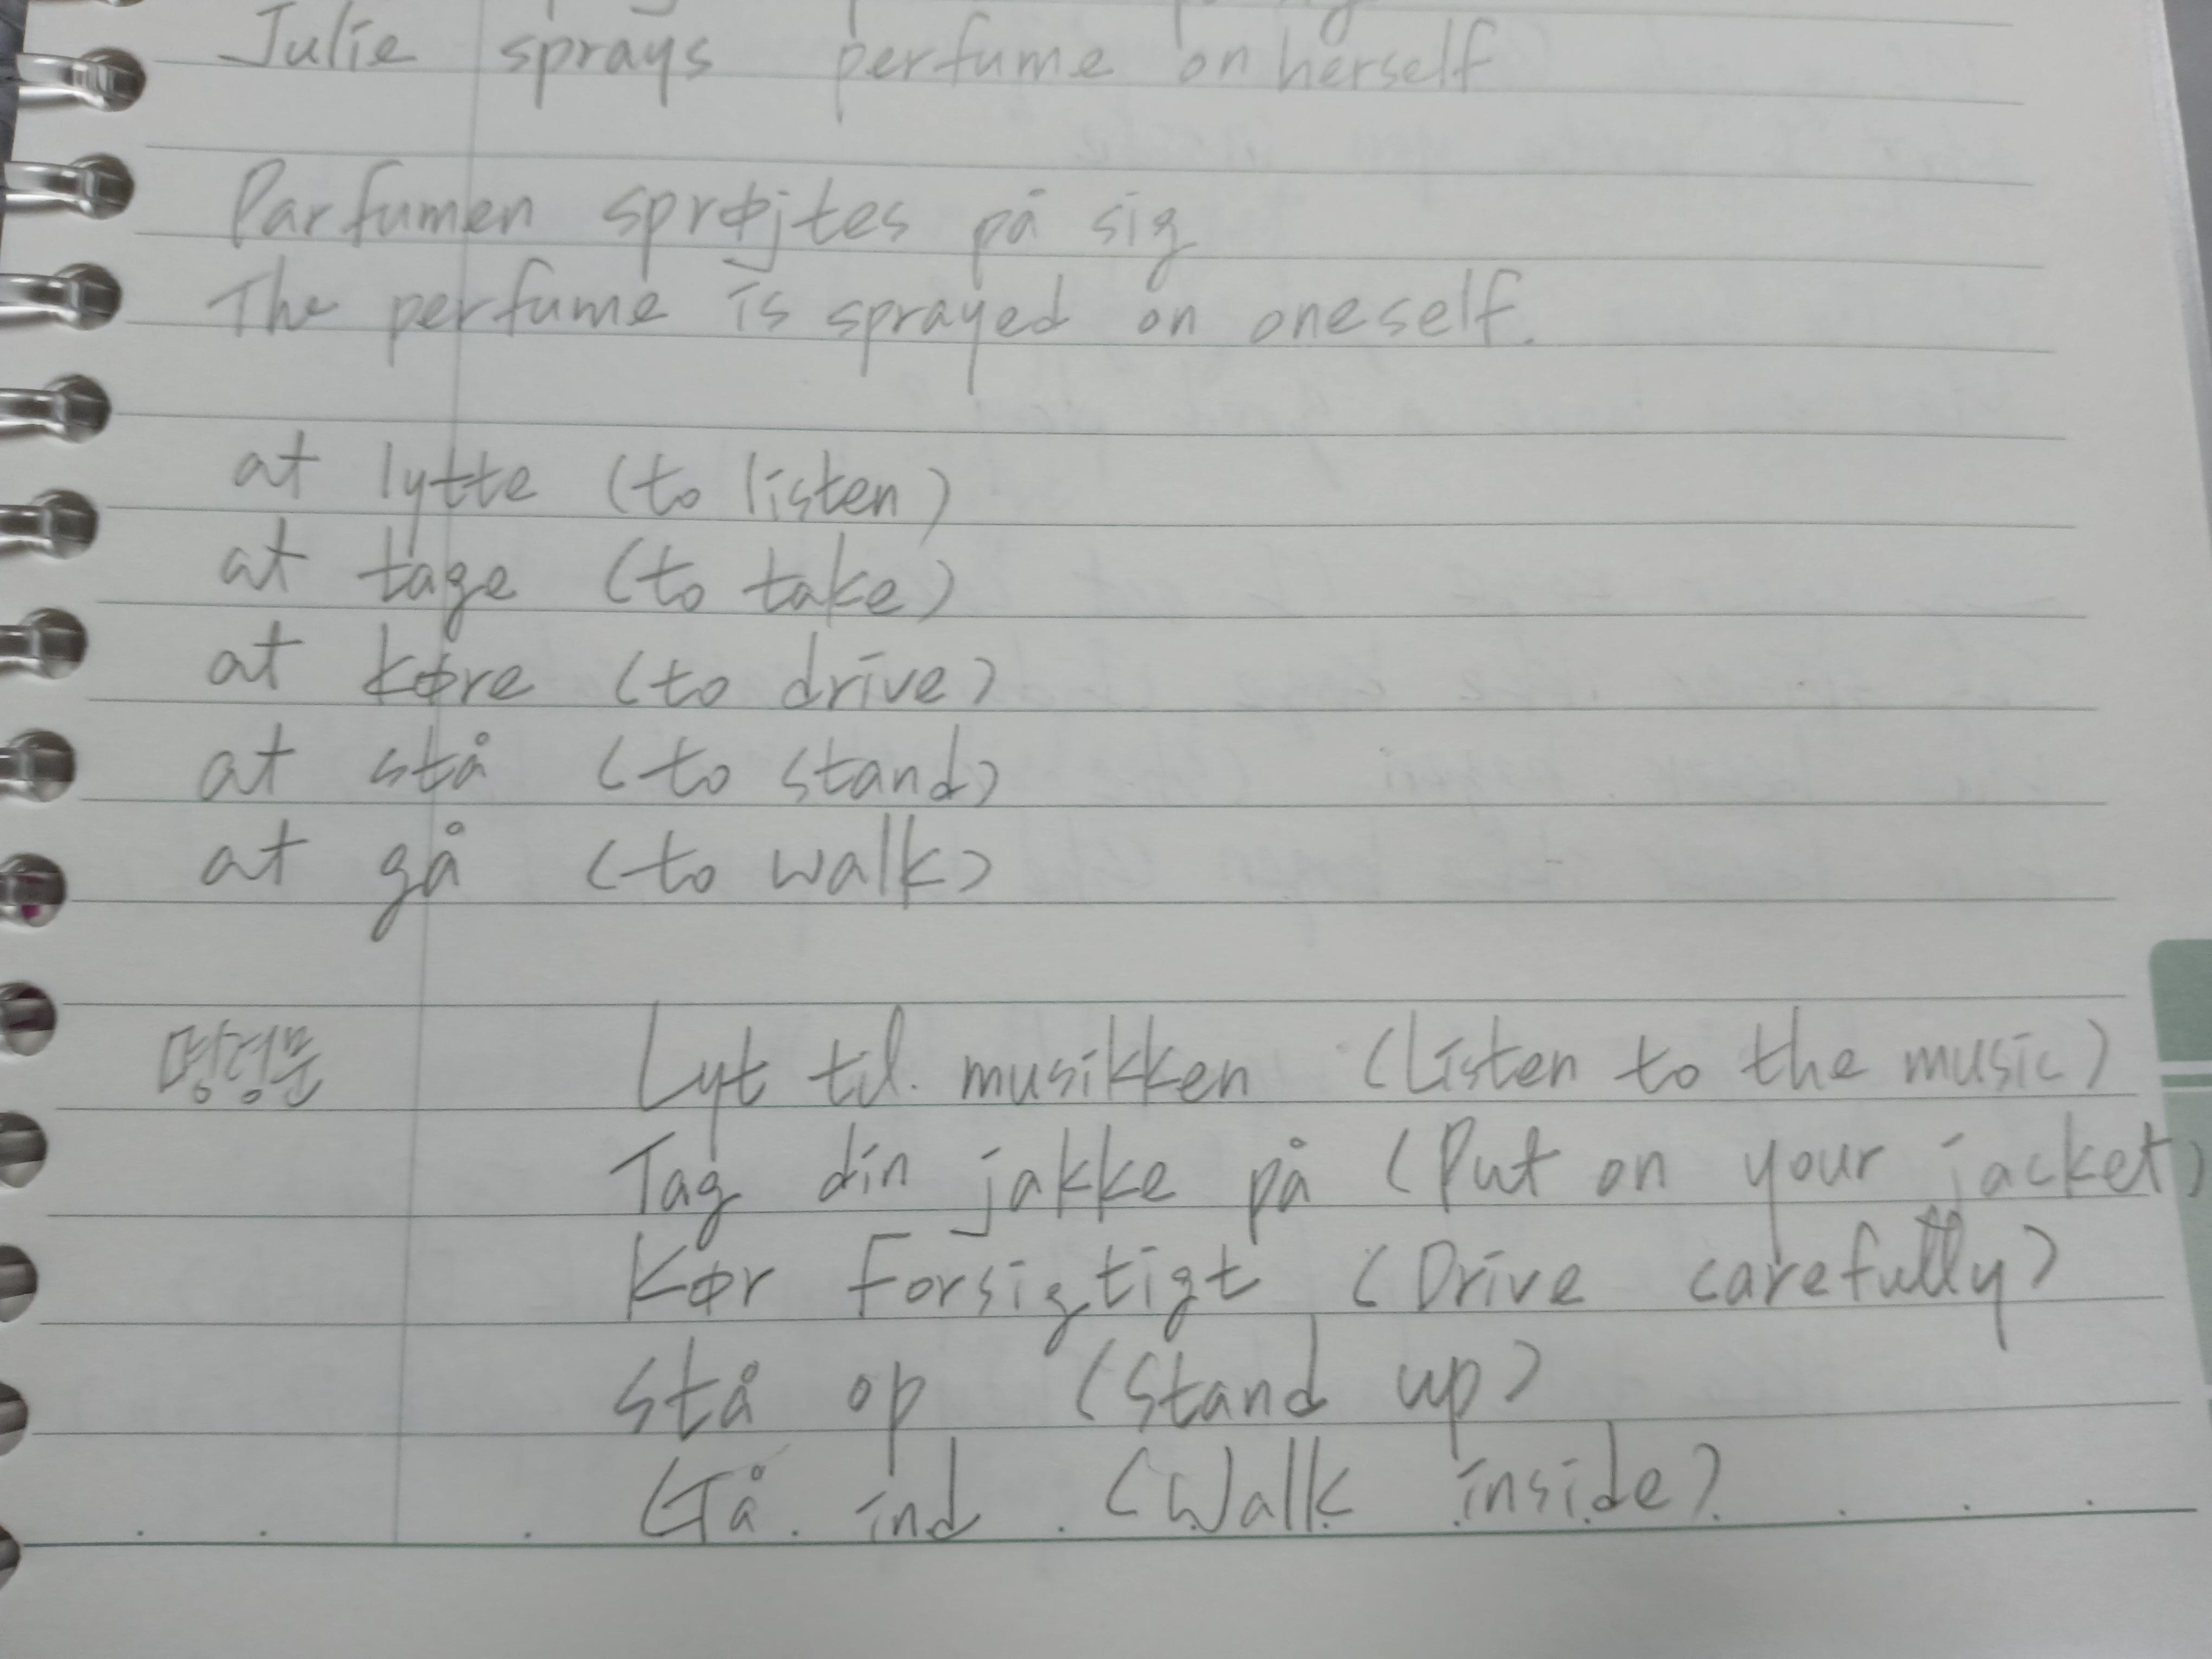 Julie sprays perfume on herself
Parfumen sprøjtes på sig
The perfume is sprayed on oneself.
at lytte (to listen)
at tage (to take)
at køre (to drive)
at stå (to stand)
at gå (to walk)
명령문 Lyt til musikken (Listen to the music)
Tag din jakke på (Put on your jacket)
Kør Forsigtigt (Drive carefully)
Stå op (Stand up)
Gå ind (Walk inside)